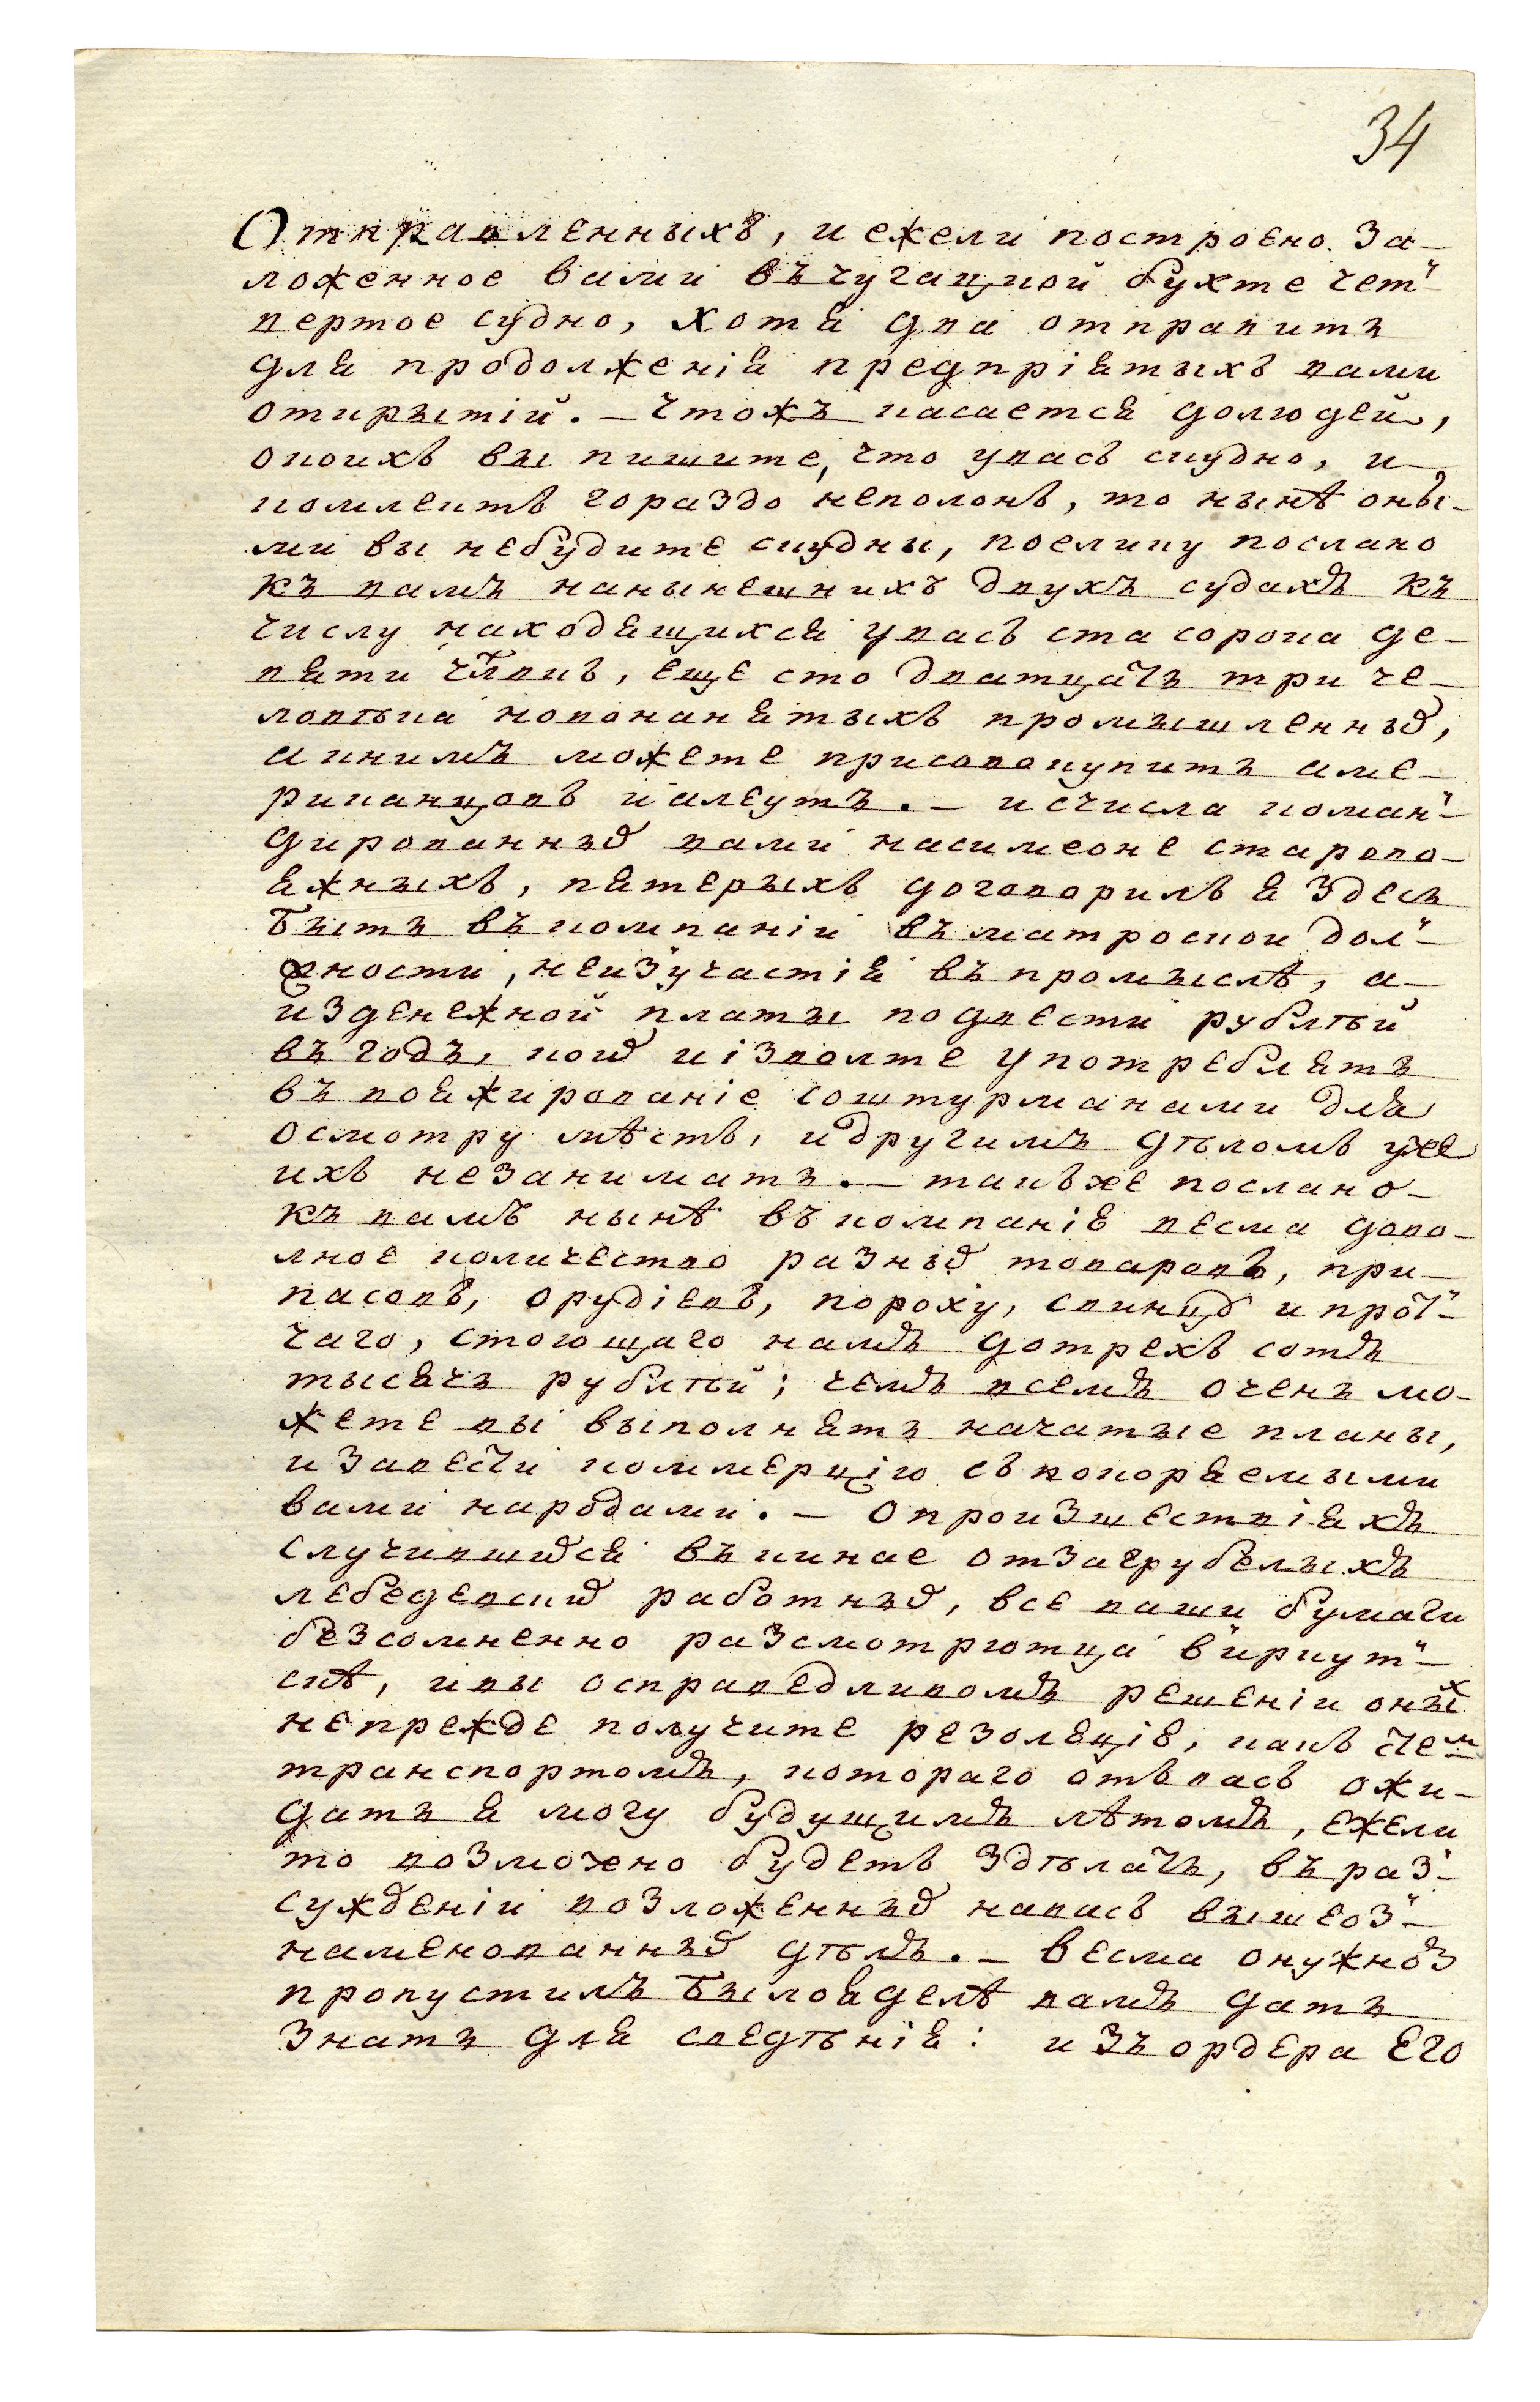 34
Отправленныхъ, и ежели построено за-
ложенное вами въ чугацкой бухте чет-
вертое судно, хотя два отправить
для продолженія предпріятыхъ вами
открытій. – Чтожъ касается долюдей,
окоихъ вы пишите, что увасъ скудно, и
комлектъ гораздо неполонъ, то нынѣ оны-
ми вы небудите скудны, поелику послано
къ вамъ нанынешнихъ двухъ судахъ къ
числу находящихся увасъ ста сорока де-
вяти члвкъ, еще сто дватцать три че-
ловѣка новонанятыхъ промышленных,
а книмъ можете присовокупить аме-
риканцовъ иалеутъ. – исчисла коман-
дированных вами насимеоне старово-
яжныхъ, пятерыхъ договорилъ я здесь
быть въкомпаніи въматроской дол-
жности, неизучастія въпромыслѣ, а
изденежной платы подвести рублѣй
въ годъ, коих иізволте употреблять
въ вояжированіе соштурманами для
осмотру мѣстъ, идругимъ дѣломъ уже
ихъ незанимать. – такъже послано
къ вамъ нынѣ въкомпанію весма дово-
лное количество разных товаровъ, при-
пасовъ, орудіевъ, пороху, свинцу и прот-
чаго, стоющаго намъ дотрехъ сотъ
тысячь рублѣй; чемъ всемъ очень мо-
жете вы выполнять начатые планы,
и завести коммерцію съ покоряемыми
вами народами. – О произшествіяхъ
случившихся въкинае отзагрубелыхъ
лебедевских работных, все ваши бумаги
безсомненно разсмотрютца виркут-
скѣ, ивы осправедливомъ решеніи оных
непрежде получите резолюцію, какъ счем
транспортомъ, котораго отъвасъ ожи-
дать я могу будущимъ лѣтомъ, ежели
то возможено будетъ здѣлать, въ раз-
сужденіи возложенных навасъ вышеоз-
наменованных дѣлъ. – Весма онужномъ
пропустилъ былоядѣлѣ вамъ дать
знать для сведѣнія: изъордера Его